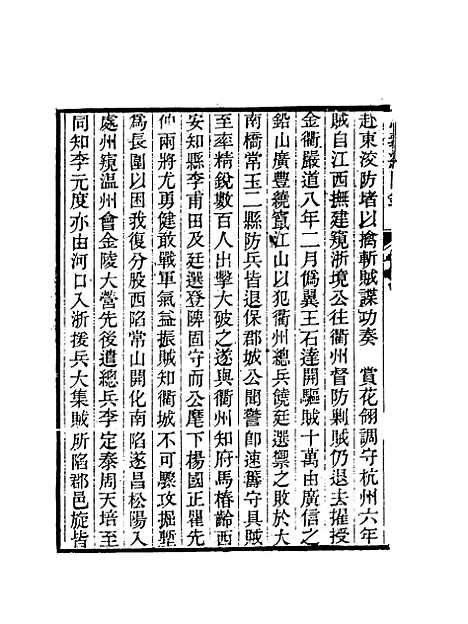 赴東淩防堵以擒斬賊諜功奏　賞花翎調守杭州六年
賊自江西撫建窺浙境公往衢州督防剿賊仍退去擢授
金衢嚴道八年二月僞翼王石達開驅賊十萬由廣信之
鉛山廣豐繞竄江山以犯衢州總兵饒廷選禦之敗於大
南橋常玉二縣防兵皆退保郡城公聞警卽速籌守具賊
至率精銳數百人出擊大破之遂與衢州知府馬椿齡西
安知縣李甫田及廷選登陴固守而公麾下楊國正瞿先
仲兩將尤勇健敢戰軍氣益振賊知衢城不可驟攻掘塹
爲長圍以困我復分股西陷常山開化南陷遂昌松陽入
處州窺温州會金陵大營先後遣總兵李定泰周天培至
同知李元度亦由河口入浙援兵大集賊所陷郡邑旋皆